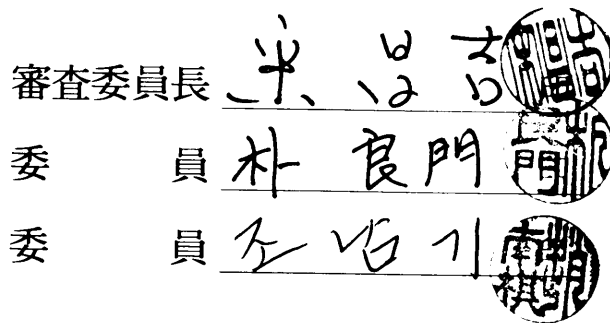 審査委員長 昌吉
委員 朴良門
委員 조남기